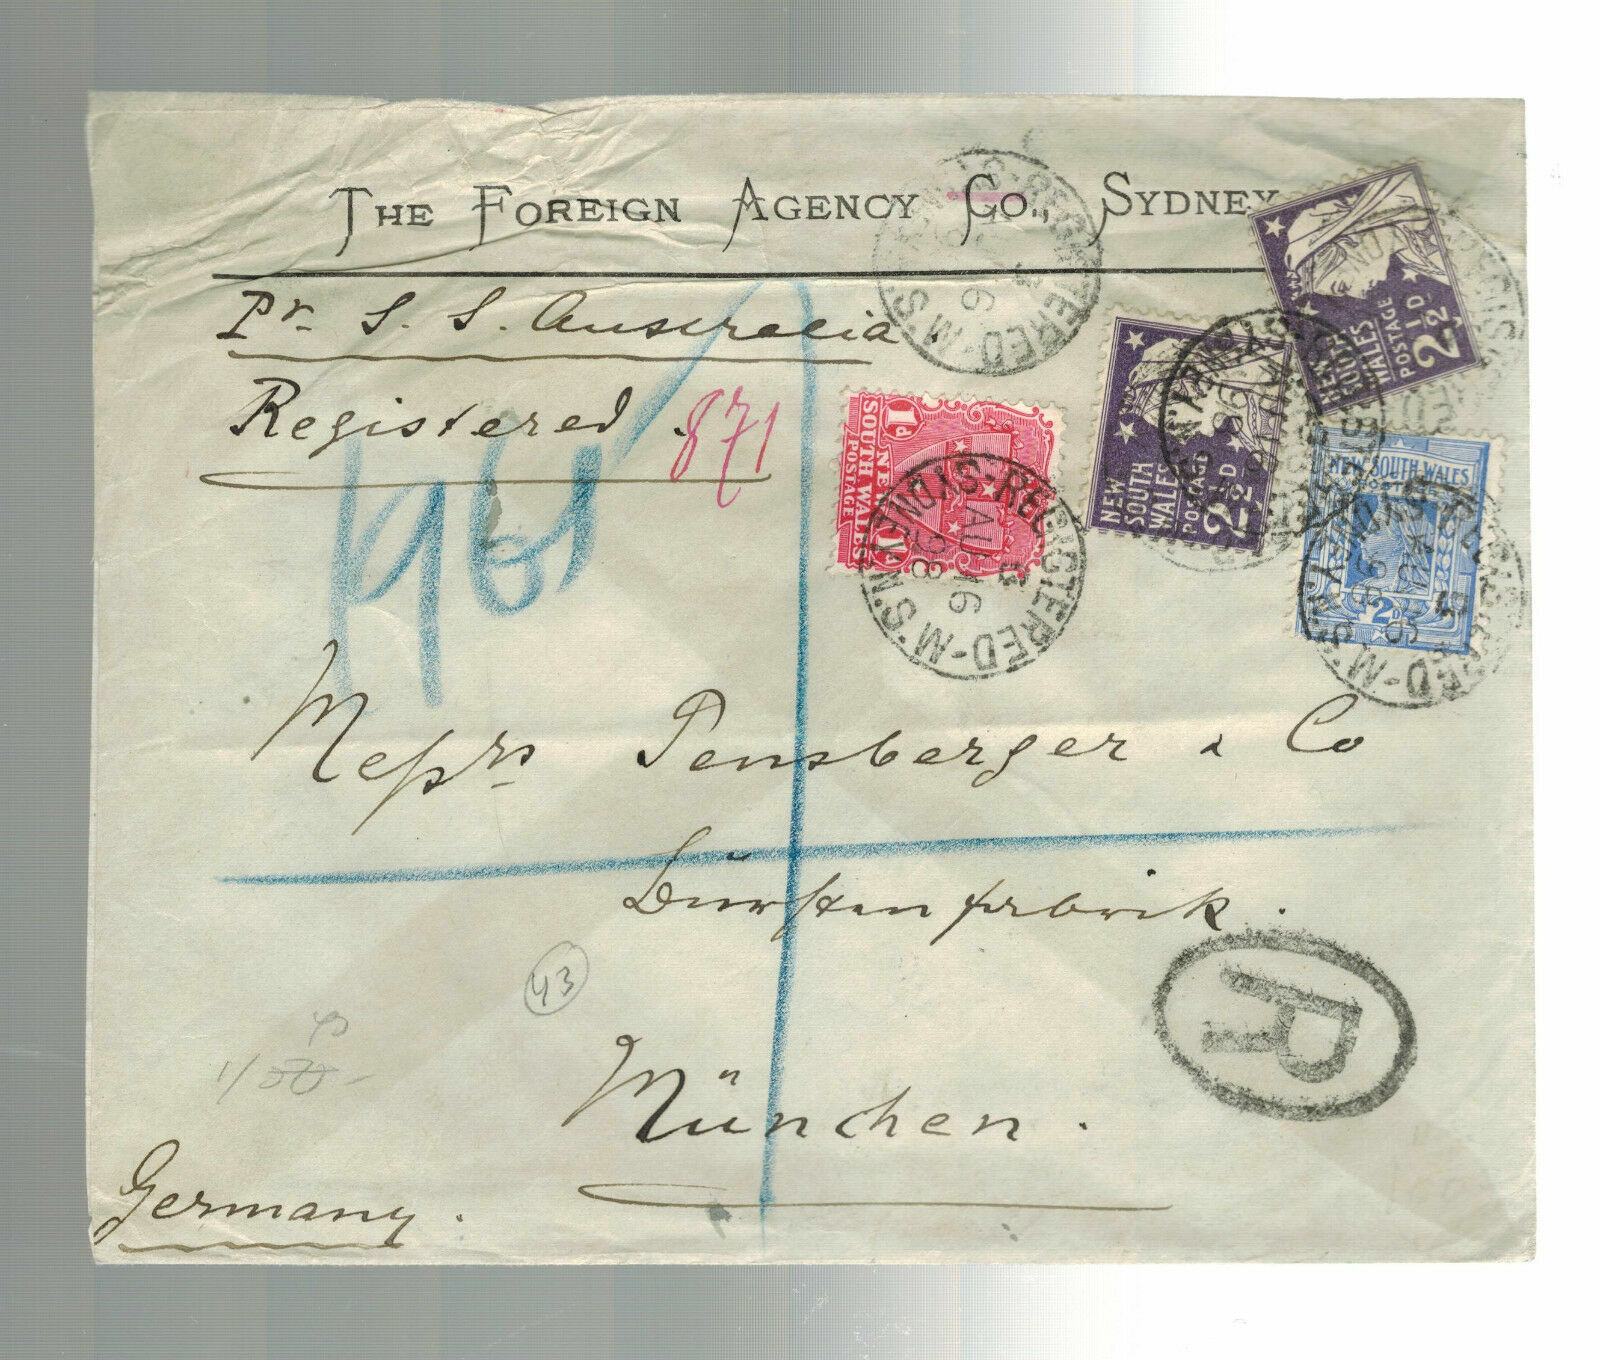 THE FOREIGN AGENCY CO., SYDNEY
Pr. S. S. Australia.
Registered. 871
196
ONE 1D
SOUTH WALES
POSTAGE
NEW
SOUTH
WALES
POSTAGE
2½D
NEW
SOUTH
WALES
POSTAGE
2½D
NEW SOUTH WALES
POSTAGE
2D
REGISTERED-M.S.
REGISTERED-M.S. SYDNEY
AU 16
98
Messrs Pensberger & Co
Bürstenfabrik.
R
43
München.
Germany.